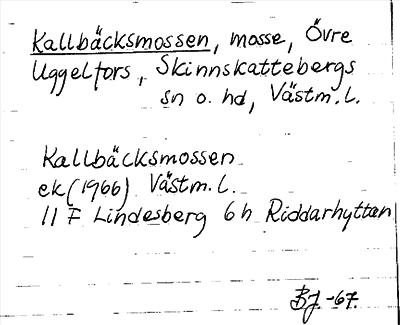 Kallbäcksmossen, mosse, Övre
Uggelfors, Skinnskattebergs
sn o. hd, Västm.l.
Kallbäcksmossen
ek (1966) Västm.l.
11 F Lindesberg 6h Riddarhyttan
BJ -67.